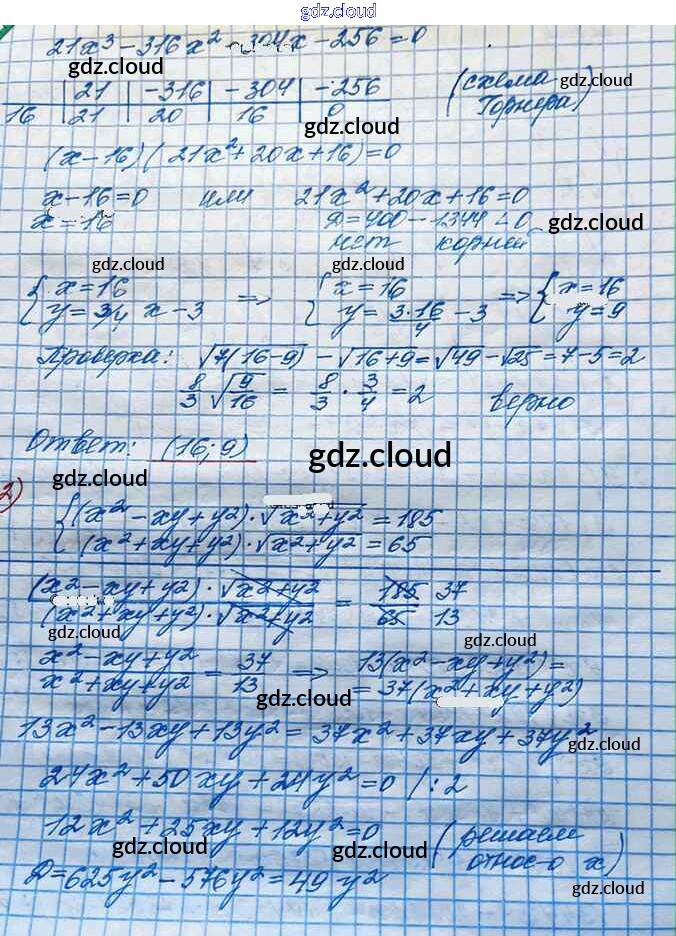 gdz.cloud
21x³ - 316x² - 304x - 256 = 0
gdz.cloud
gdz.cloud
| 21 | -316 | -304 | -256 (схема Горнера)
16 | 21 | 20 | 16 | 0
gdz.cloud
(x-16)(21x²+20x+16)=0
x-16=0 или 21x²+20x+16=0
x=16 D=400-1344<0
gdz.cloud
нет корней
gdz.cloud gdz.cloud
{x=16 => {x=16 => {x=16
y=3/4 x-3 y=3·16/4 -3 y=9
Проверка: √7(16-9) - √16+9 = √49 - √25 = 7-5=2
8/3 √9/16 = 8/3 · 3/4 = 2 верно
Ответ: (16; 9)
gdz.cloud
gdz.cloud
2)
{(x²-xy+y2)·√x²+y² = 185
(x²+xy+y²)·√x2+y2 = 65
(x²-xy+y2)·√x²+y2 / (x²+xy+y²)·√x²+y² = 185/65 37/13
gdz.cloud gdz.cloud
x²-xy+y2 / x²+xy+y2 = 37/13 => 13(x²-xy+y²)=
=37(x²+xy+y²)
gdz.cloud
13x²-13xy+13y²=37x²+37xy+37y²
gdz.cloud
24x²+50xy+24y²=0 /:2
12x²+25xy+12y²=0 (решаем относ-о x)
gdz.cloud gdz.cloud
D=625y²-576y²=49y²
gdz.cloud